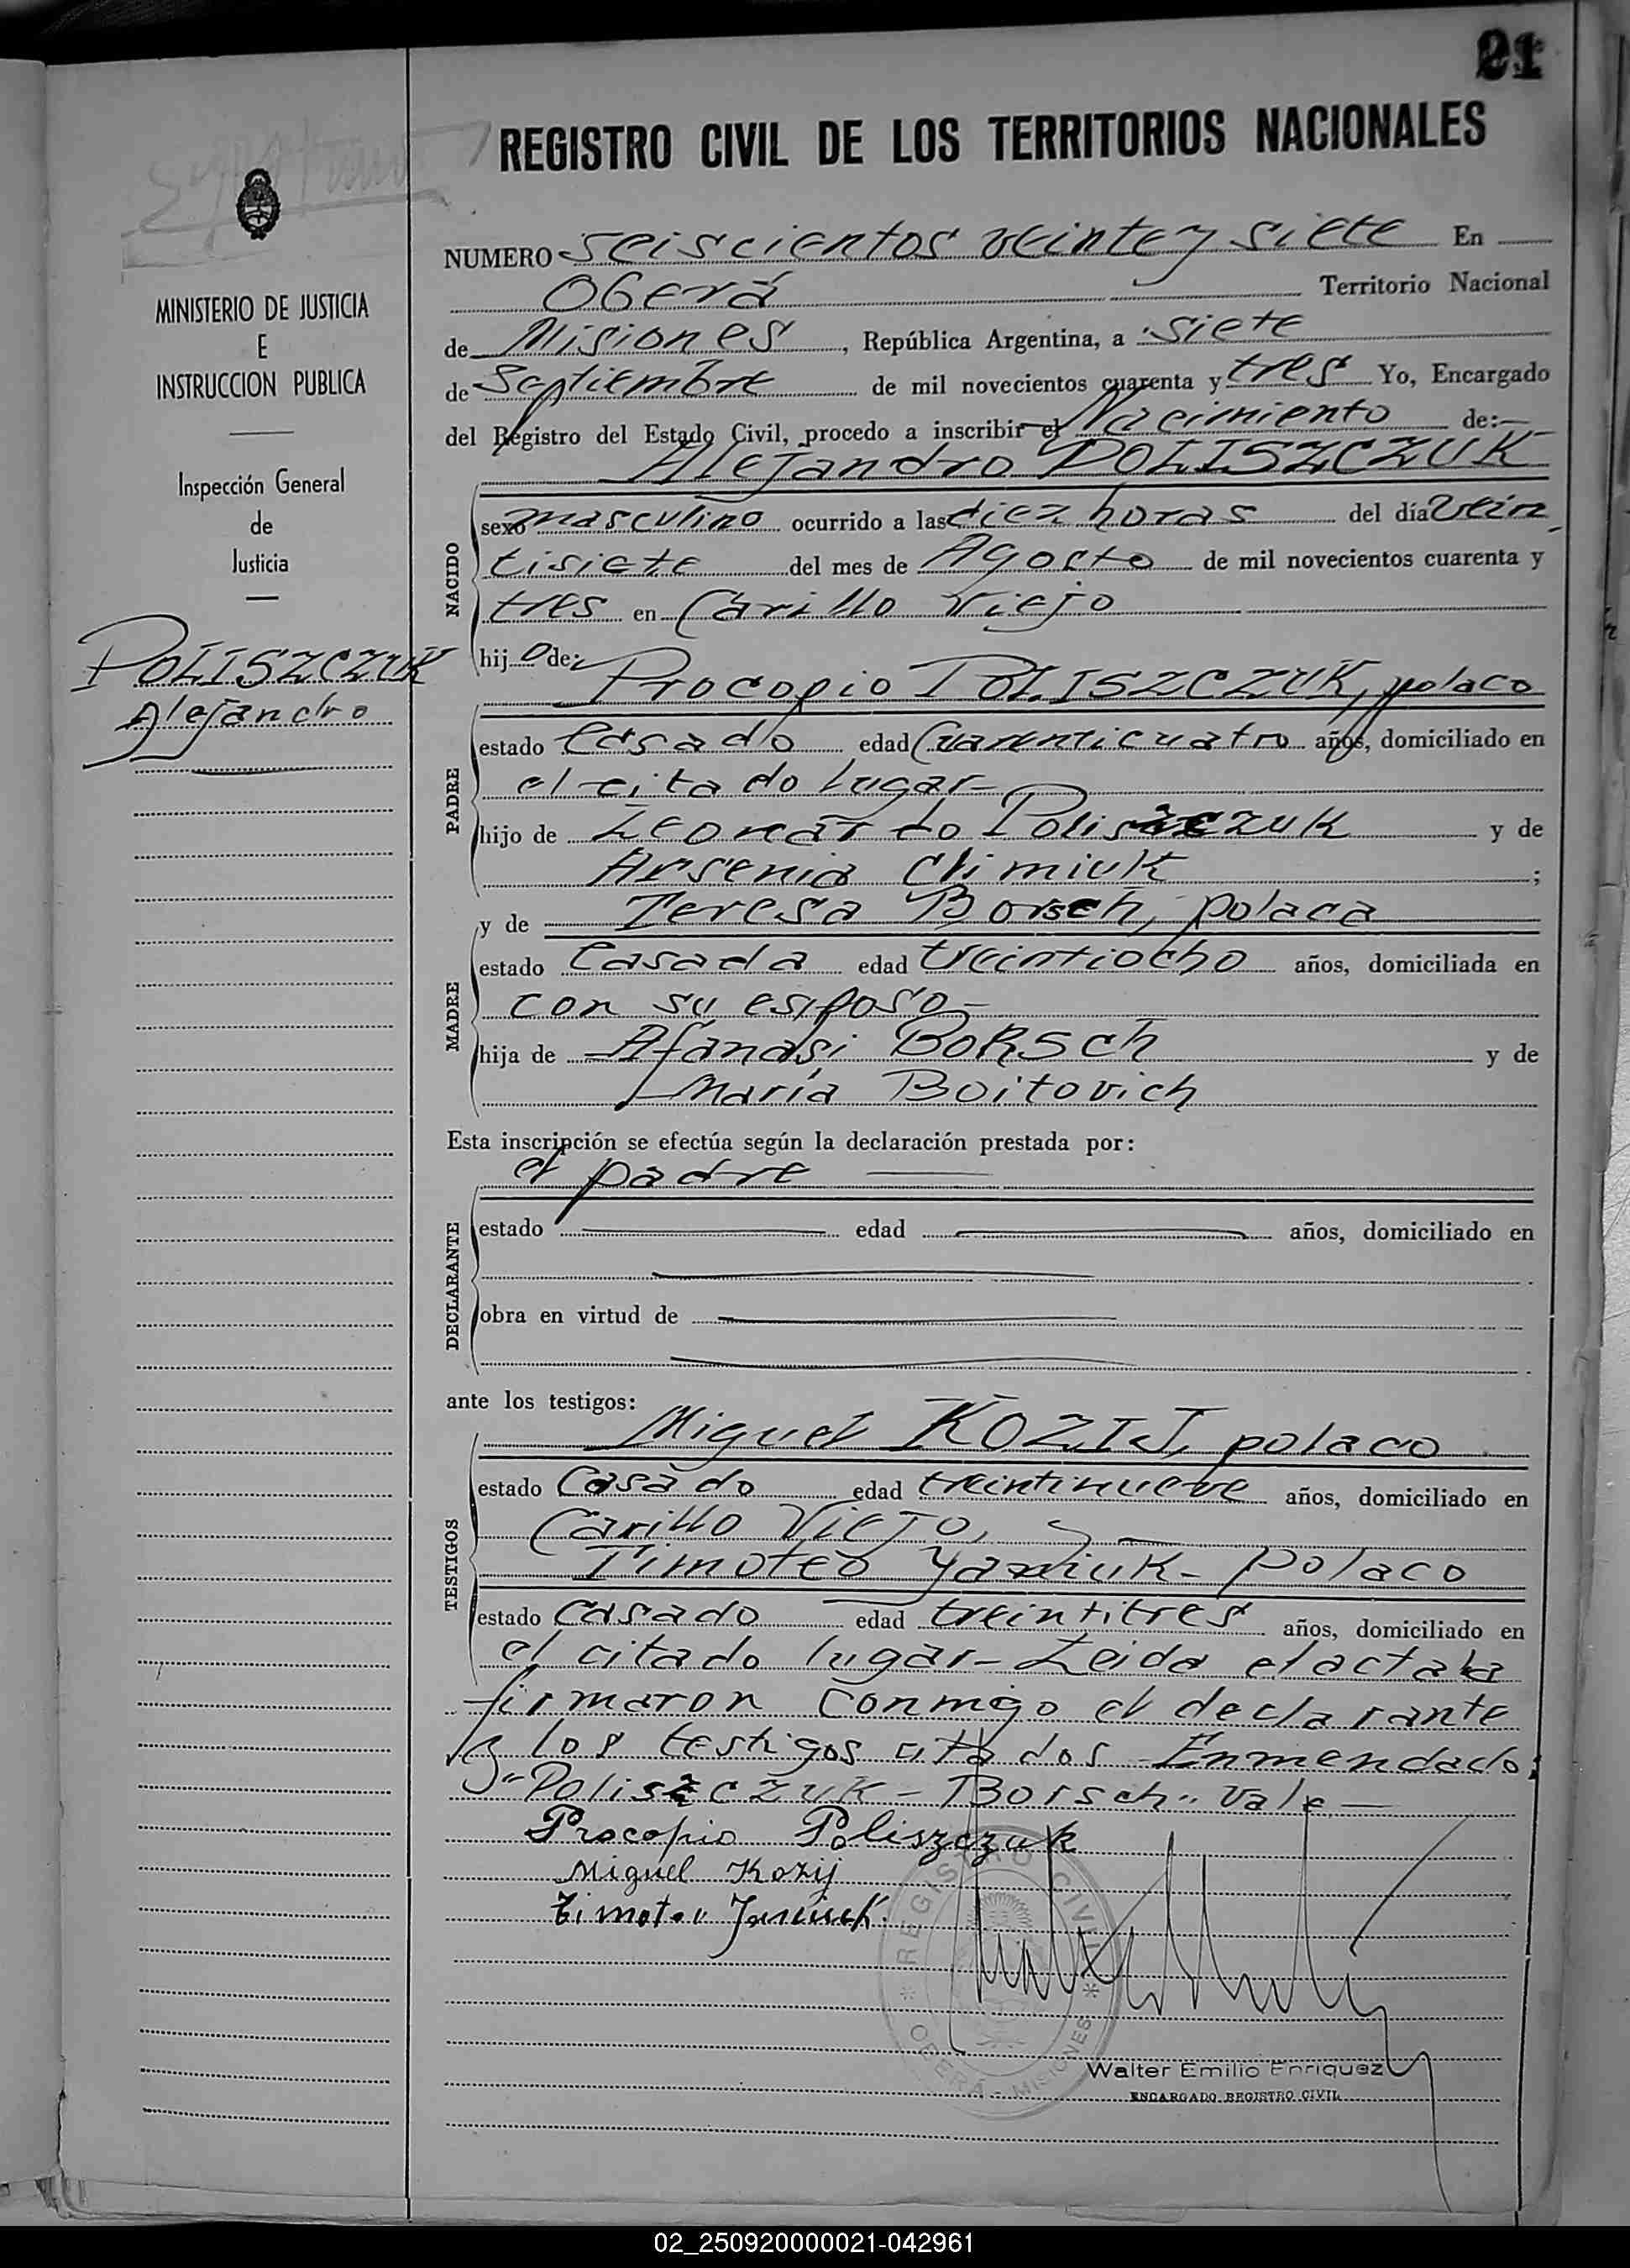 21
REGISTRO CIVIL DE LOS TERRITORIOS NACIONALES
MINISTERIO DE JUSTICIA
E
INSTRUCCION PUBLICA
Inspección General
de
Justicia
POLISZCZUK
Alejandro
NUMERO seiscientos veinte y siete En
Oberá Territorio Nacional
de Misiones, República Argentina, a siete
de Septiembre de mil novecientos cuarenta y tres Yo, Encargado
del Registro del Estado Civil, procedo a inscribir el Nacimiento de:
Alejandro POLISZCZUK
NACIDO
sexo masculino ocurrido a las diez horas del día vein
tisiete del mes de Agosto de mil novecientos cuarenta y
tres en Carillo Viejo
hijo de:
Procopio POLISZCZUK, polaco
PADRE
estado Casado edad Cuarenticuatro años, domiciliado en
el citado lugar-
hijo de Leonardo Poliszczuk y de
Arsenia Climiuk;
y de Teresa Borsch, polaca
MADRE
estado Casada edad treintiocho años, domiciliada en
con su esposo-
hija de Afanasi BORSCH y de
María Boitovich
Esta inscripción se efectúa según la declaración prestada por:
el padre
DECLARANTE
estado edad años, domiciliado en
obra en virtud de
ante los testigos:
Miguel KOZIJ, polaco
TESTIGOS
estado Casado edad treintinueve años, domiciliado en
Carillo Viejo, y
Timoteo polaco
estado casado edad treintitres años, domiciliado en
el citado lugar- Leida el acta la
firmaron conmigo el declarante
y los testigos citados-Enmendado:
"Poliszczuk-Borsch" Vale-
Procopio Poliszczuk
Miguel Kozij
Timoteo
REGISTRO CIVIL
OBERÁ - MISIONES
Walter Emilio Enriquez
ENCARGADO REGISTRO CIVIL
02_250920000021-042961